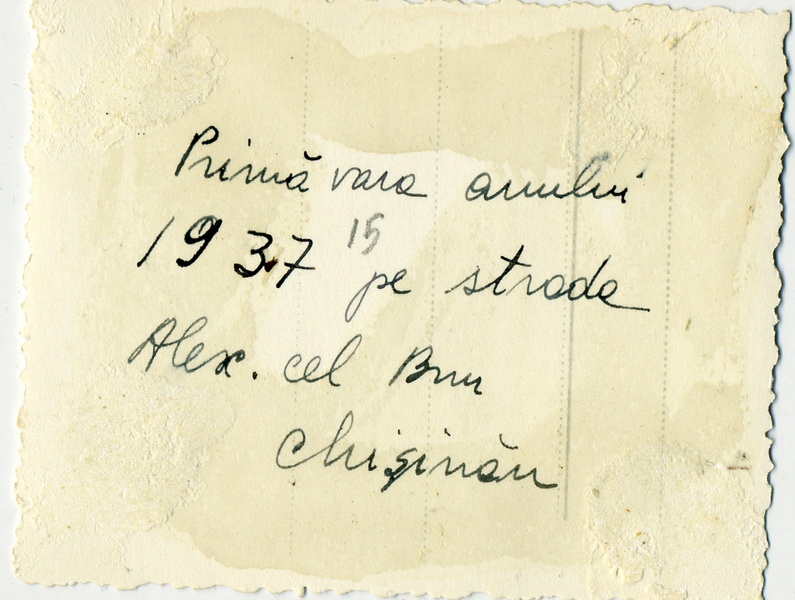 Primăvara anului
1937 15 pe strada
Alex. cel Bun
Chişinău